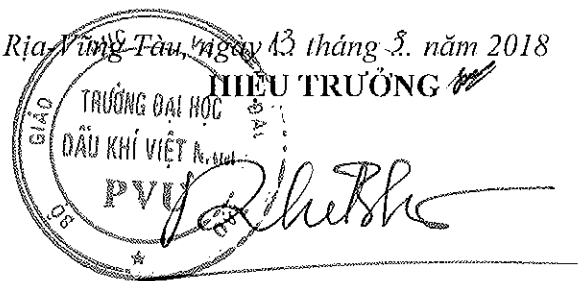 Rịa-Vũng Tàu, ngày 13 tháng 8. năm 2018
HIỆU TRƯỞNG
TRƯỜNG ĐẠI HỌC
DẦU KHÍ VIỆT NAM
PVU
BỘ GIÁO